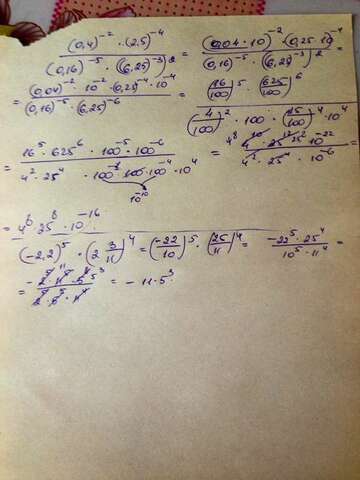 (0,4)⁻² · (2,5)⁻⁴ / (0,16)⁻⁵ · (6,25)⁻³⁾² = (0,04 · 10)⁻² · (0,25 · 10)⁻⁴ / (0,16)⁻⁵ · (6,25)⁻³⁾² =
= (0,04)⁻² · 10⁻² · 0,25⁻⁴ · 10⁻⁴ / (0,16)⁻⁵ · (6,25)⁻⁶ = (16/100)⁵ · (625/100)⁶ / (4/100)² · 100 · (25/100)⁴ · 10⁴
= 16⁵ · 625⁶ · 100⁻⁵ · 100⁻⁶ / 4² · 25⁴ · 100 · 100 · 100⁻⁴ · 10⁴ = 4¹⁰ · 25¹² · 10⁻²² / 4² · 25⁴ · 10⁻⁶ =
10⁻¹⁰
= 4⁸ · 25⁸ · 10⁻¹⁶
(-2,2)⁵ · (2 3/11)⁴ = (-22/10)⁵ · (25/11)⁴ = -22⁵ · 25⁴ / 10⁵ · 11⁴ =
= -2⁵ · 11⁵ · 5⁸ / 2⁵ · 5⁵ · 11⁴ = - 11 · 5³